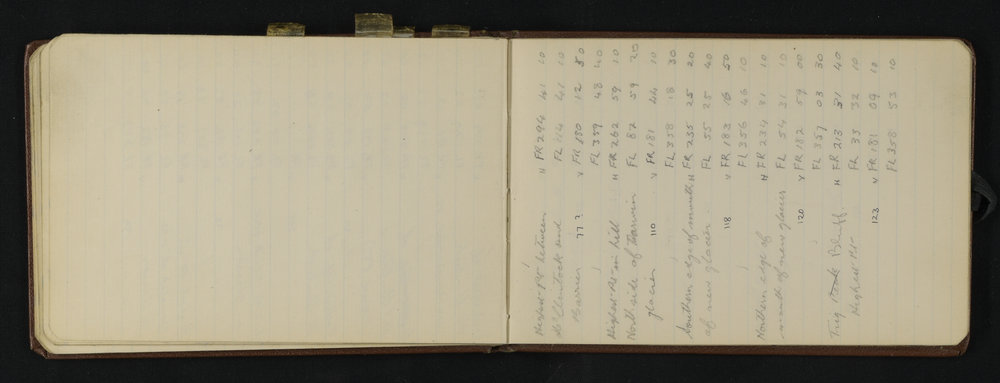 Highest Pt between H FR 294 41 10
McClintock and FL 114 41 10
Barrier 77? V FR 180 12 50
FL 359 48 40
Highest Pt in hill H FR 262 59 10
North side of Darwin FL 82 59 20
glacier 110 V FR 181 44 10
FL 358 18 30
Southern edge of mouth H FR 235 25 20
of new glacier FL 55 25 40
118 V FR 183 16 50
FL 356 46 10
Northern edge of H FR 234 31 10
mouth of new glacier FL 54 31 10
120 V FR 182 59 00
FL 357 03 30
Trig Bluff H FR 213 31 40
Highest Pt FL 33 32 10
123 V FR 181 09 10
FL 358 53 10